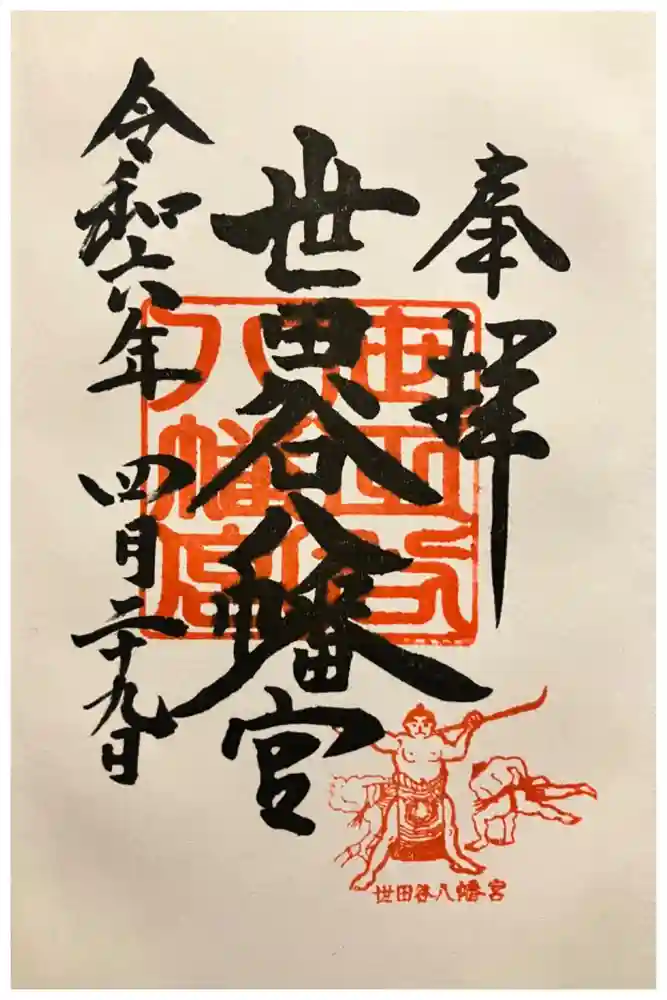 奉拝
世田谷八幡宮
令和六年 四月二十九日
世田谷八幡宮
世田谷八幡宮